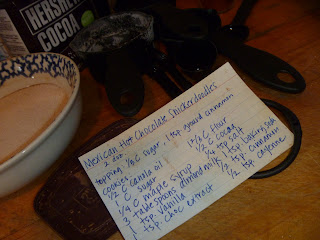 HERSHEY'S
COCOA
Mexican Hot Chocolate Snickerdoodles
2 doz
topping 1/3 C sugar, 1 tsp ground cinnamon
cookies
1/2 C canola oil
C sugar
1/4 C maple syrup
3 tablespoons almond milk
1 tsp vanilla
1 tsp. choc extract
flour
1/2 C cocoa
1/4 tsp salt
1 tsp baking soda
1/2 tsp cinnamon
1/2 tsp cayenne